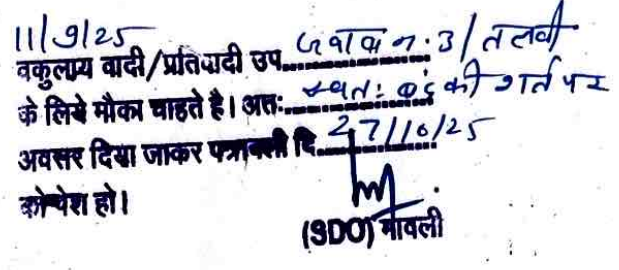 11/9/25
वकुलाय वादी/प्रतिवादी उप......जवाब न. 3/तलवी
के लिये मौका चाहते है। अतः......स्वतः बंद की शर्त पर
अवसर दिया जाकर पत्रावली दि......27/10/25
को पेश हो।
(SDO) मावली